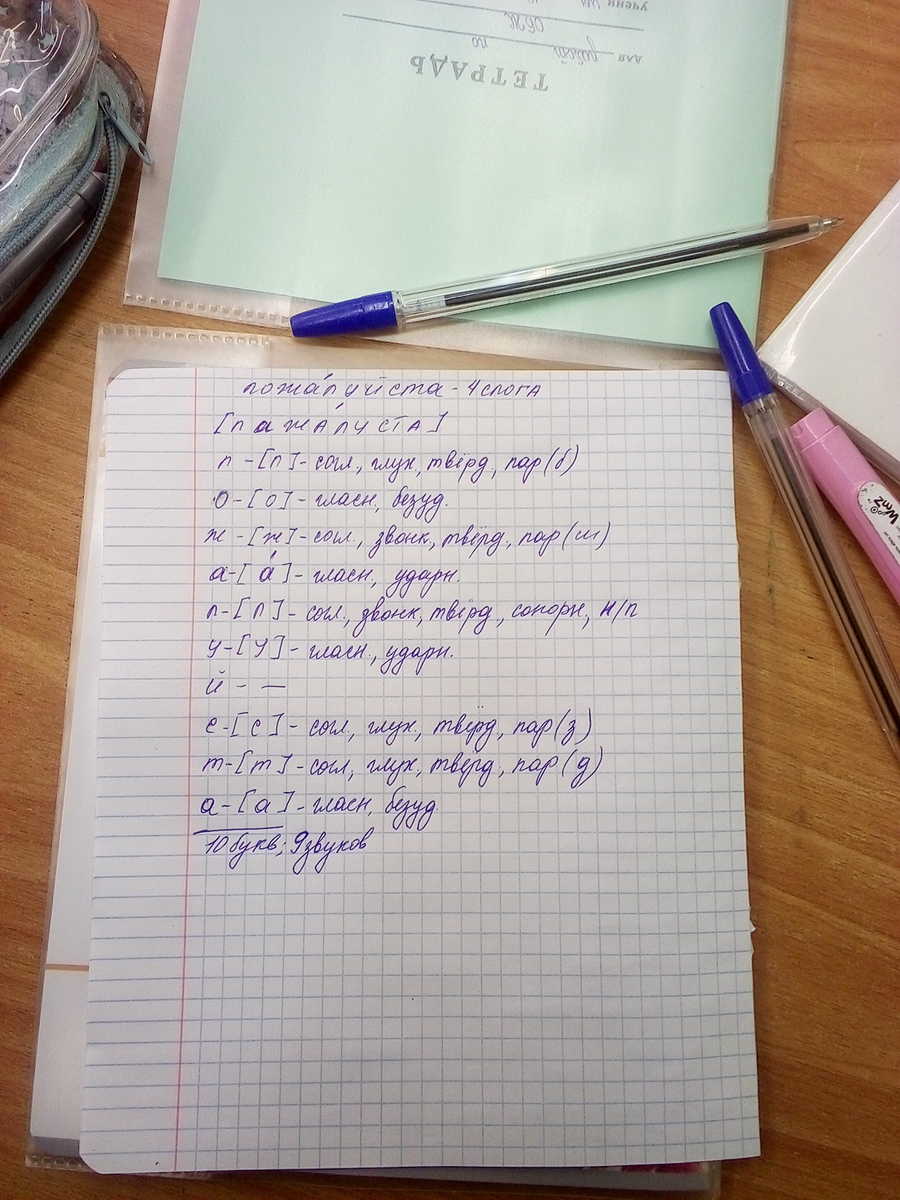 учени
ОБЖ
для работ по
ТЕТРАДЬ
пожа́луйста - 4 слога
[пажа́луста]
п - [п] - согл, глух, твёрд, пар (б)
о - [о] - гласн, безуд.
ж - [ж] - согл., звонк, твёрд, пар (ш)
а - [а́] - гласн, ударн.
л - [л] - согл., звонк, твёрд, сонорн, н/п
у - [у] - гласн., ударн.
й - —
с - [с] - согл, глух., твёрд, пар (з)
т - [т] - согл, глух, твёрд, пар (д)
а - [а] - гласн, безуд.
10 букв; 9 звуков